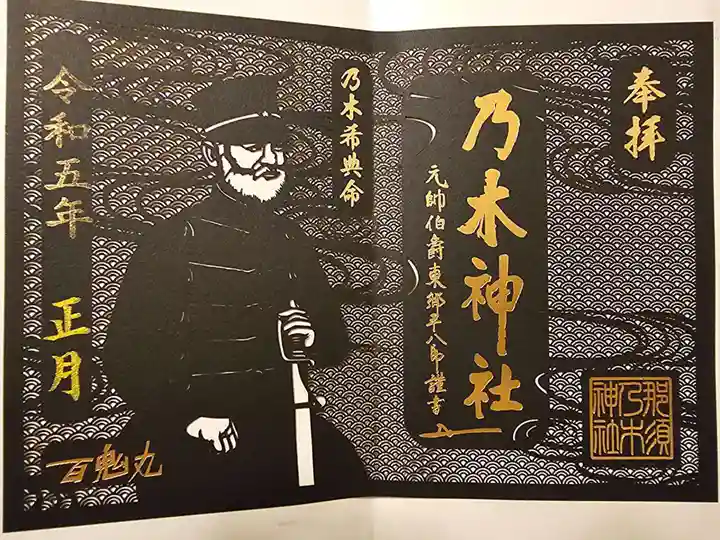 奉拝
乃木神社
元帥伯爵東郷平八郎謹書
那須
乃木
神社
乃木希典命
令和五年
正月
百鬼丸